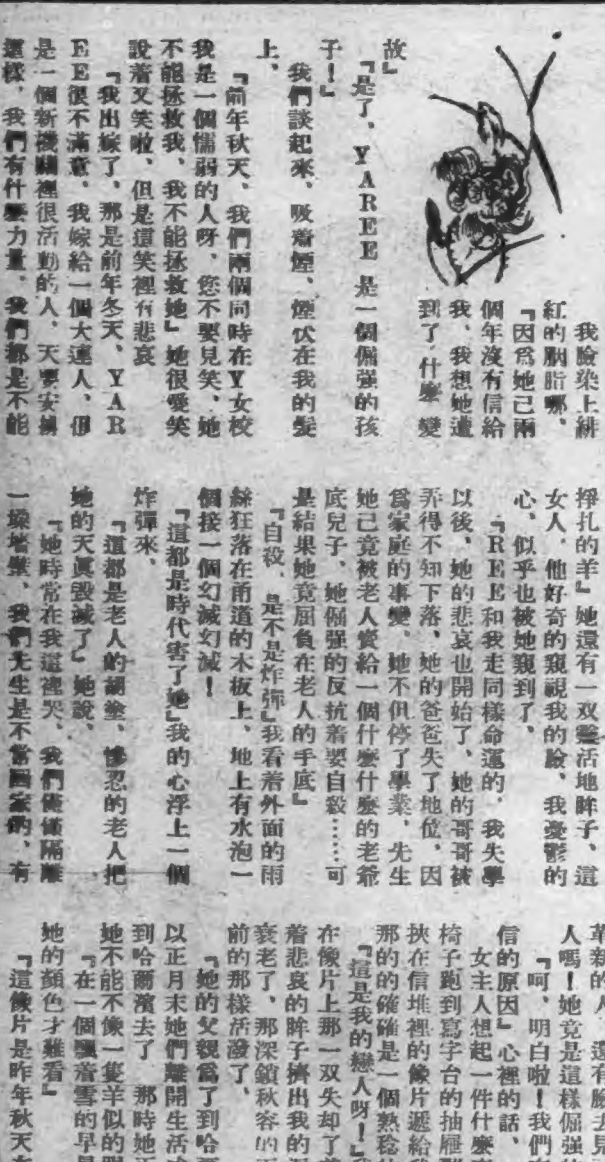 我臉染上緋
紅的胭脂哪、
『因爲她已兩
個年沒有信給
我、我想她遭
到了什麼 變
故』
『是了、YAREE 是一個倔强的孩
子！』
我們談起來、吸着煙、煙伏在我的髮
上、
『前年秋天、我們兩個同時在Y女校
我是一個懦弱的人呀、您不要見笑、她
不能拯救我、我不能拯救她』她很愛笑
說着又笑啦、但是這笑裡有悲哀
『我出嫁了、那是前年冬天、YAR
EE很不滿意、我嫁給一個大連人、但
是一個新機關裡很活動的人、天要安排
這樣、我們有什麼力量、我們都是不能
掙扎的羊』她還有一双靈活地眸子、這
女人、他好奇的窺視我的臉、我憂鬱的
心、似乎也被她窺到了、
『REE和我走同樣命運的、我失學
以後、她的悲哀也開始了、她的哥哥被
弄得不知下落、她的爸爸失了地位、因
爲家庭的事變、她不但停了學業、先生
她已竟被老人賣給一個什麼什麼的老爺
底兒子、她倔强的反抗着要自殺……可
是結果她竟屈負在老人的手底』
『自殺、是不是炸彈』我看着外面的雨
絲狂落在甬道的木板上、地上有水泡一
個接一個幻滅幻滅！
『這都是時代害了她』我的心浮上一個
炸彈來、
『這都是老人的胡塗、慘忍的老人把
她的天眞毀滅了』她說、
『她時常在我這裡哭、我們僅僅隔離
一塚墻壁、我們先生是不常回家的、有
革新的人、還有臉去見
人嗎！她竟是這樣倔强
『呵、明白啦！我們
信的原因』心裡的話、
女主人想起一件什麼
椅子跑到寫字台的抽屜
挾在信堆裡的像片遞給
那的的確確是一個熟稔
『這是我的戀人呀！』
在像片上那一双失却了
着悲哀的眸子擠出我的
衰老了、那深鎖秋容的
前的那樣活潑了、
『她的父親爲了到哈
以正月末她們離開生活
到哈爾濱去了 那時她
她不能不像一隻羊似的
『在一個飄着雪的早
她的顏色才難看』
『這像片是昨年秋天